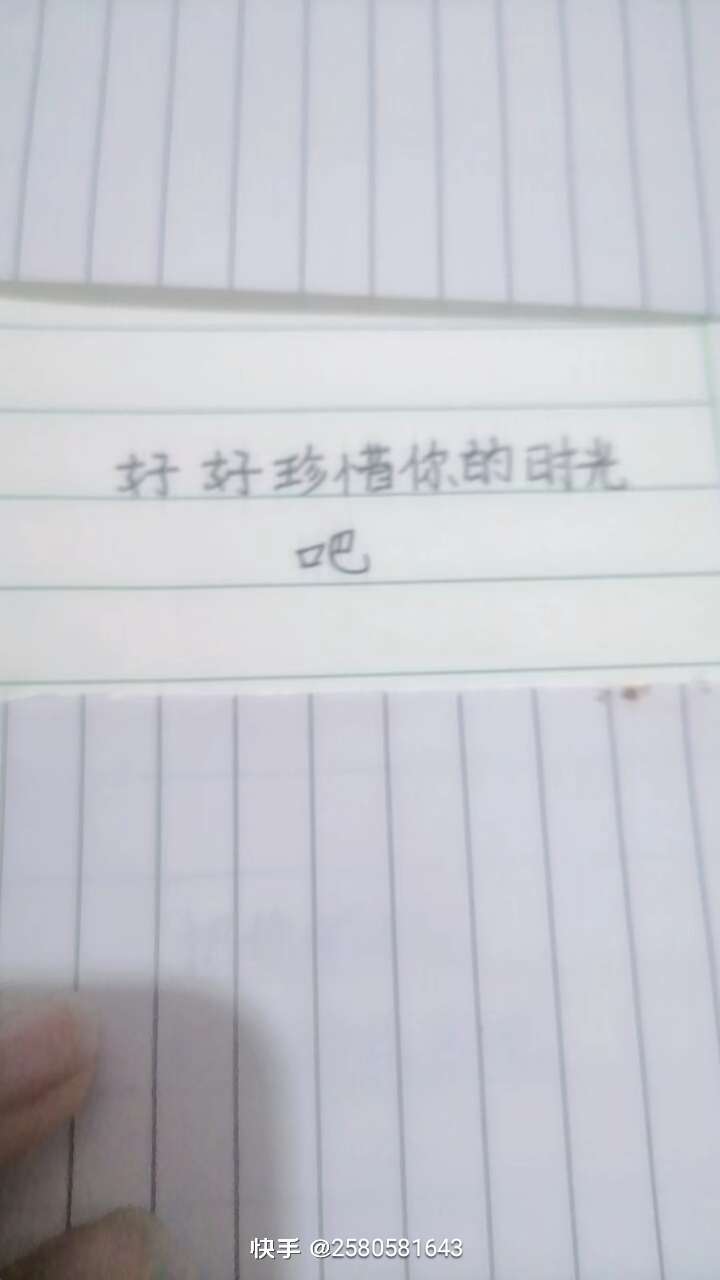 好好珍惜你的时光
吧
快手 @2580581643